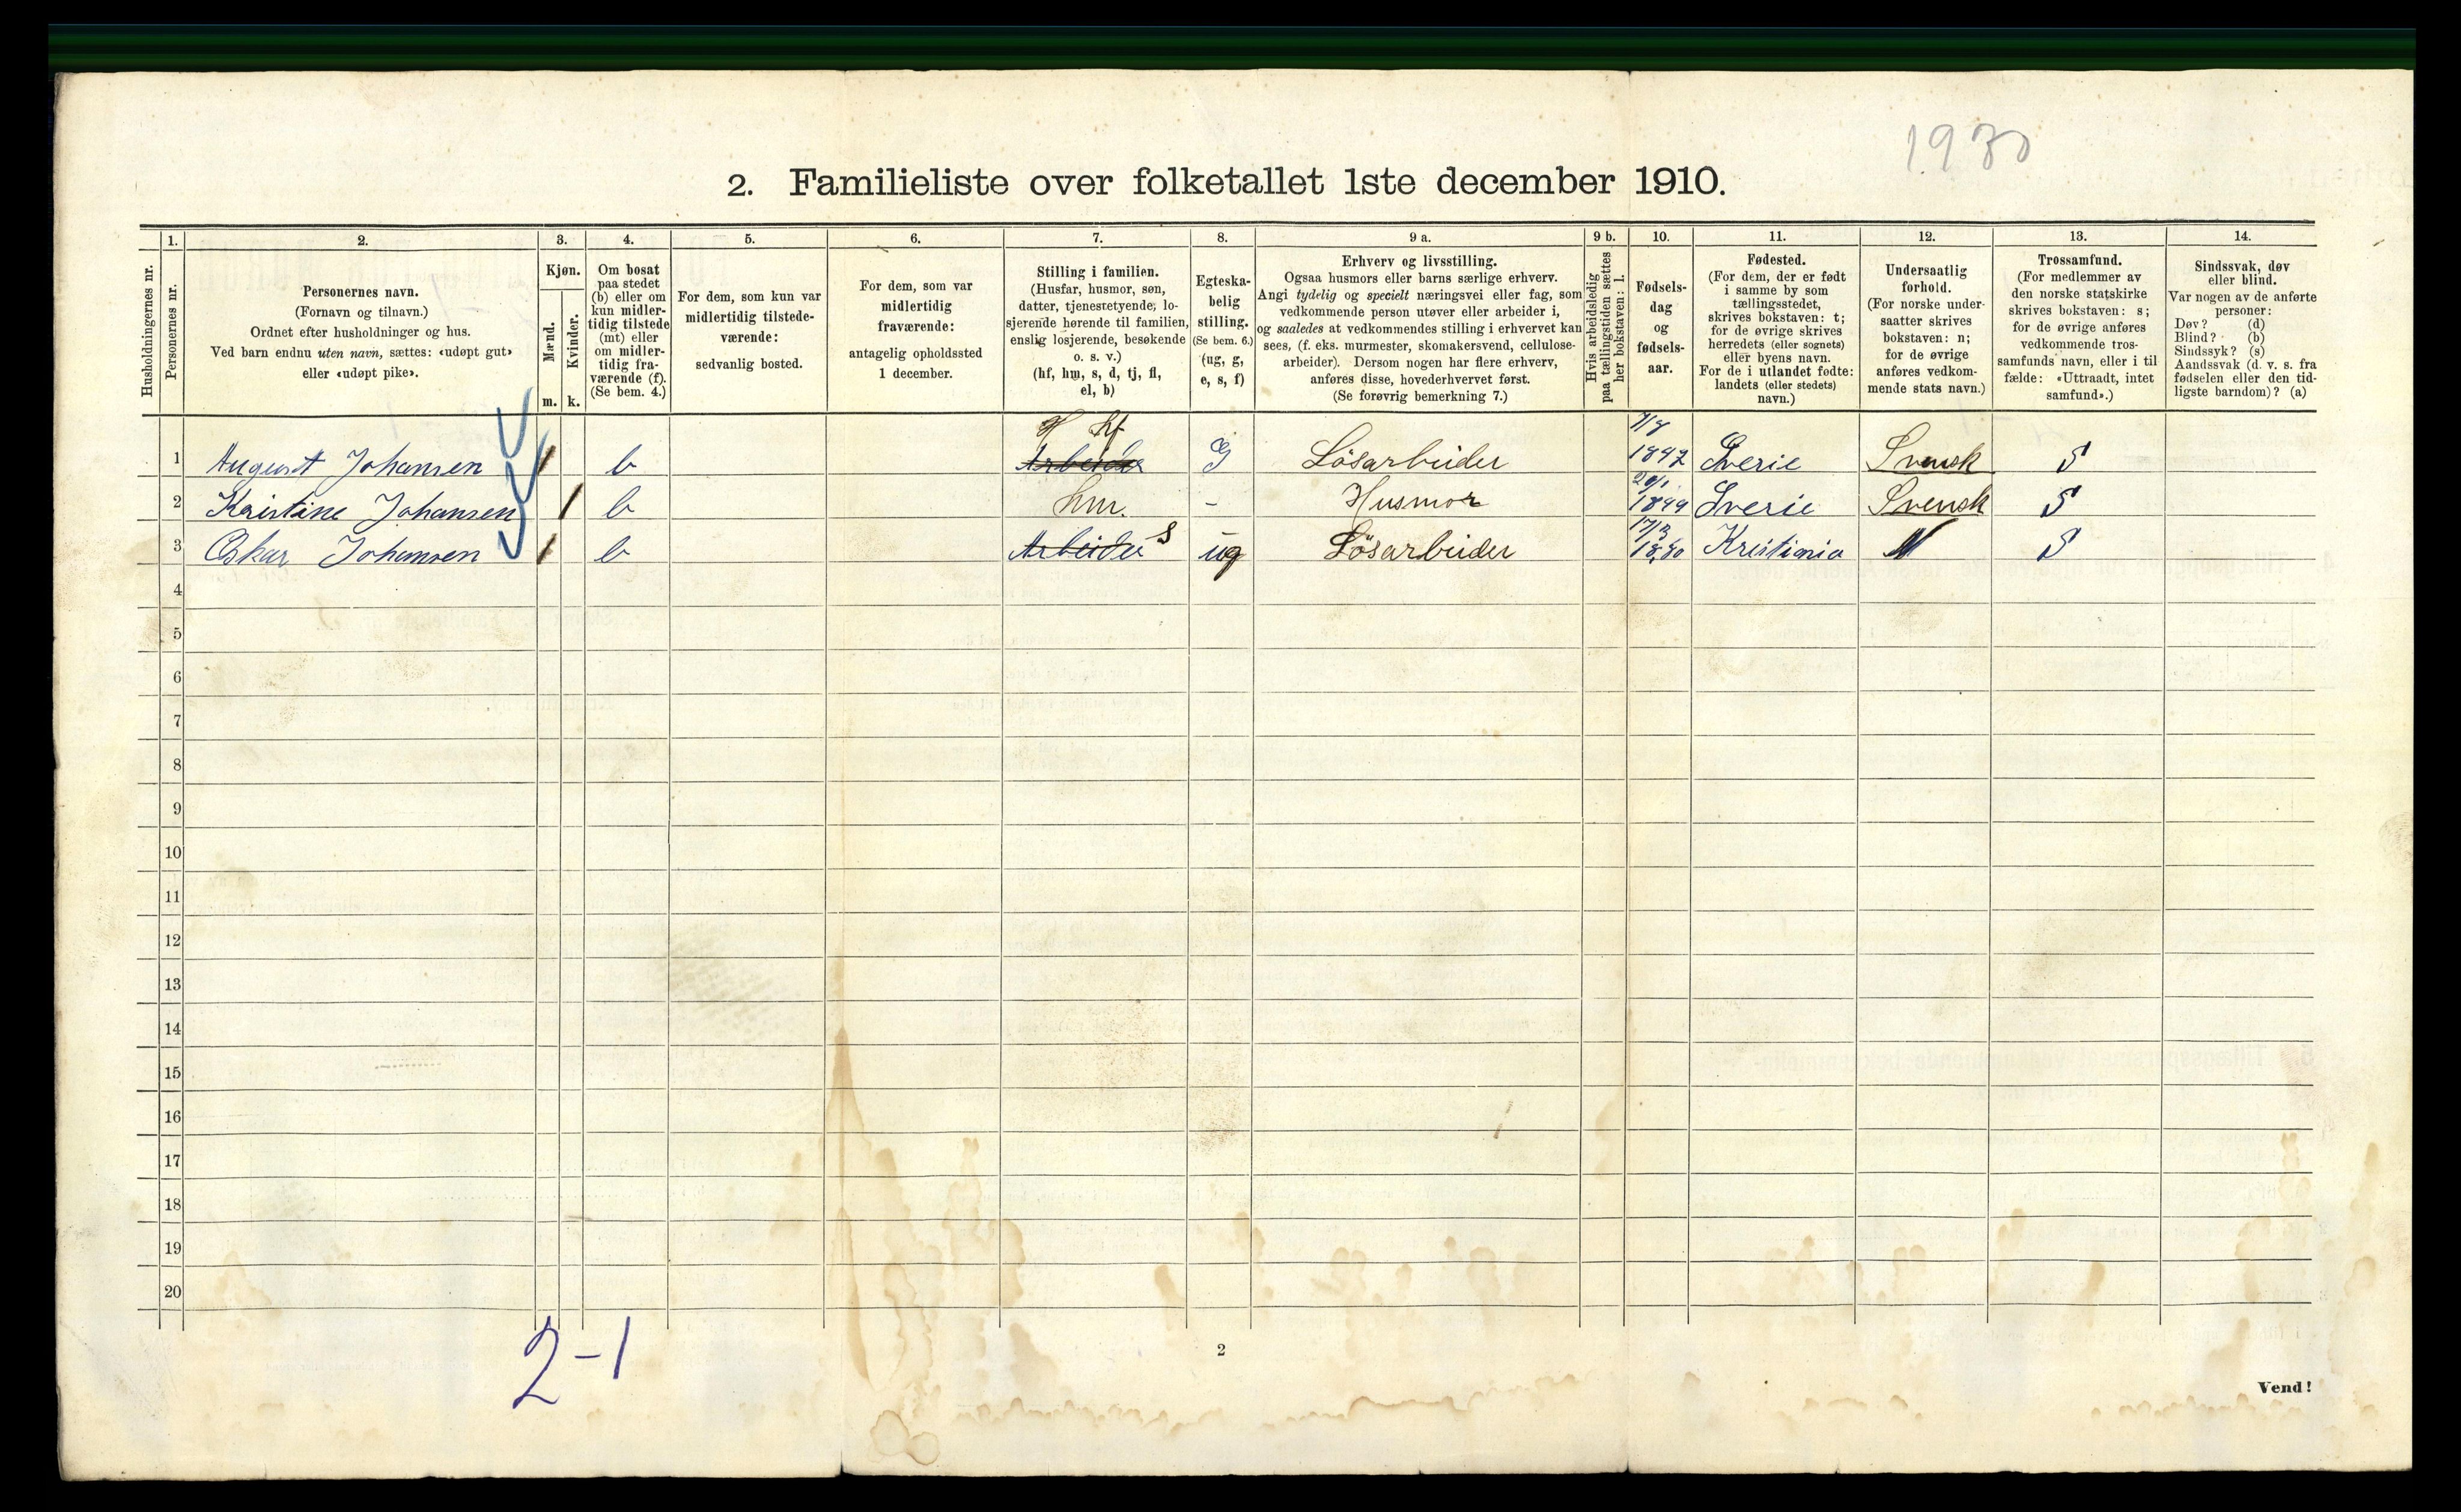 1930
2. Familieliste over folketallet 1ste december 1910.
Husholdningernes nr.
1.
Personernes nr.
2.
Personernes navn.
(Fornavn og tilnavn.)
Ordnet efter husholdninger og hus.
Ved barn endnu uten navn, sættes: «udøpt gut»
eller «udøpt pike».
3.
Kjøn.
Mænd.
Kvinder.
m. k.
4.
Om bosat
paa stedet
(b) eller om
kun midler-
tidig tilstede
(mt) eller
om midler-
tidig fra-
værende (f).
(Se bem. 4.)
5.
For dem, som kun var
midlertidig tilstede-
værende:
sedvanlig bosted.
6.
For dem, som var
midlertidig
fraværende:
antagelig opholdssted
1 december.
7.
Stilling i familien.
(Husfar, husmor, søn,
datter, tjenestetyende, lo-
sjerende hørende til familien,
enslig losjerende, besøkende
o. s. v.)
(hf, hm, s, d, tj, fl,
el, b)
8.
Egteska-
belig
stilling.
(Se bem. 6.)
(ug, g,
e, s, f)
9 a.
Erhverv og livsstilling.
Ogsaa husmors eller barns særlige erhverv.
Angi tydelig og specielt næringsvei eller fag, som
vedkommende person utøver eller arbeider i,
og saaledes at vedkommendes stilling i erhvervet kan
sees, (f. eks. murmester, skomakersvend, cellulose-
arbeider). Dersom nogen har flere erhverv,
anføres disse, hovederhvervet først.
(Se forøvrig bemerkning 7.)
9 b.
Hvis arbeidsledig
paa tællingstiden sættes
her bokstaven: l.
10.
Fødsels-
dag
og
fødsels-
aar.
11.
Fødested.
(For dem, der er født
i samme by som
tællingsstedet,
skrives bokstaven: t;
for de øvrige skrives
herredets (eller sognets)
eller byens navn.
For de i utlandet fødte:
landets (eller stedets)
navn.)
12.
Undersaatlig
forhold.
(For norske under-
saatter skrives
bokstaven: n;
for de øvrige
anføres vedkom-
mende stats navn.)
13.
Trossamfund.
(For medlemmer av
den norske statskirke
skrives bokstaven: s;
for de øvrige anføres
vedkommende tros-
samfunds navn, eller i til
fælde: «Uttraadt, intet
samfund».)
14.
Sindssvak, døv
eller blind.
Var nogen av de anførte
personer:
Døv? (d)
Blind? (b)
Sindssyk? (s)
Aandssvak (d. v. s. fra
fødselen eller den tid-
ligste barndom)? (a)
hf
1 August Johansen 1 b Arbeider G Løsarbeider 1847 Sverie Svensk S
2 Kristine Johansen 1 b hm. - Husmor 20/1 1849 Sverie Svensk S
3 Oskar Johansen 1 b Arbeider s ug Løsarbeider 17/3 1880 Kristiania N S
4
5
6
7
8
9
10
11
12
13
14
15
16
17
18
19
20
2-1
2
Vend!